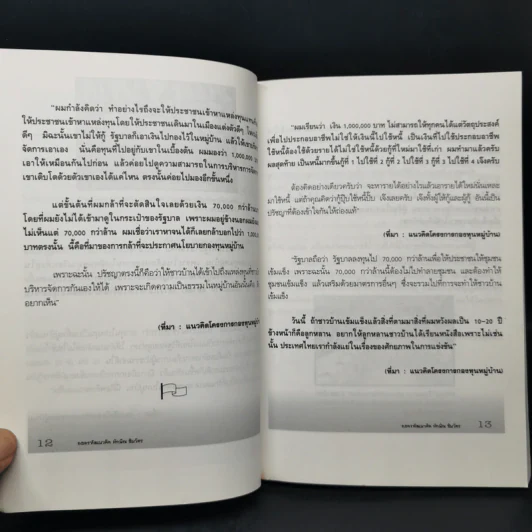 "ผมกำลังคิดว่า ทำอย่างไรถึงจะให้ประชาชนเข้าหาแหล่งทุน
ให้ประชาชนเข้าหาแหล่งทุนโดยให้ประชาชนเดินมาในเมืองแต่งตัวดีๆ
ดีๆ มิฉะนั้นเขาไม่ให้กู้ รัฐบาลก็เอาเงินไปกองไว้ในหมู่บ้าน แล้วให้เขา
จัดการเอาเอง นั่นคือทุนที่ไปอยู่กับเขาในเบื้องต้น ผมมองว่า 1,000,000
เอาให้เหมือนกันไปก่อน แล้วค่อยไปดูความสามารถในการบริหารการจัด
เขาเติบโตด้วยตัวเขาเองได้แค่ไหน ตรงนั้นค่อยไปมองอีกขั้นหนึ่ง
แต่ขั้นต้นที่ผมกล้าที่จะตัดสินใจเลยด้วยเงิน 70,000 กว่าล้าน
โดยที่ผมยังไม่ได้เข้ามาดูในกระเป๋าของรัฐบาล เพราะผมอยู่ข้างนอก
ไม่เห็นแต่ 70,000 กว่าล้าน ผมเชื่อว่าเราหาจนได้ก็เลยกลับบอกไปว่า
บาทตรงนั้น นี้คือที่มาของการกล้าที่จะประกาศนโยบายกองทุนหมู่บ้าน
เพราะฉะนั้น ปรัชญาตรงนี้ก็คือว่าให้ชาวบ้านได้เข้าไปถึงแหล่งทุน
บริหารจัดการกันเองให้ได้ เพราะจะเกิดความเป็นธรรมในหมู่บ้านอันนั้น
อยากเห็น"
(ที่มา : แนวคิดโครงการกองทุนหมู่บ้าน)
12 ยุทธศาสตร์แนวคิด ทักษิณ ชินวัตร
"ผมเรียนว่า เงิน 1,000,000 บาท ไม่สามารถให้ทุกคนได้แต่วัตถุประสงค์
เพื่อไปประกอบอาชีพไม่ใช่ให้เงินนี้ไปใช้หนี้ เป็นเงินที่ไปใช้ประกอบอาชีพ
ใช้หนี้ต้องใช้ด้วยรายได้ไม่ใช่ใช้หนี้ด้วยกู้ใหม่มาใช้ที่เก่า ผมทำมาแล้วครับ
ผลสุดท้าย เป็นหนี้มากขึ้นกู้ที่ 1 ไปใช้ที่ 2 กู้ที่ 2 ไปใช้ที่ 3 กู้ที่ 3 ไปใช้ที่ 4 เจ๊งครับ
ต้องคิดอย่างเดียวครับว่า จะหารายได้อย่างไรแล้วเอารายได้ใหม่นั่นเหละ
มาใช้หนี้ แต่ถ้าคุณคิดว่ากู้ปุ๊บใช้หนี้ปั๊บ เจ๊งเลยครับ เจ๊งทั้งผู้ให้กู้และผู้กู้ อันนี้เป็น
ปรัชญาที่ต้องเข้าใจกันให้ถ่องแท้"
(ที่มา : แนวคิดโครงการกองทุนหมู่บ้าน)
"รัฐบาลถือว่า รัฐบาลลงทุนไป 70,000 กว่าล้านเพื่อให้ประชาชนให้ชุมชน
เข้มแข็ง เพราะฉะนั้น 70,000 กว่าล้านนี้ต้องไม่ไปทำลายชุมชน และต้องทำให้
ชุมชนเข้มแข็ง แล้วเสริมด้วยมาตรการอื่นๆ ซึ่งจะรวมไปที่การจะทำให้ชาวบ้าน
เข้มแข็ง
วันนี้ ถ้าชาวบ้านเข้มแข็งแล้วสิ่งที่ตามมาสิ่งที่ผมหวังผลเป็น 10-20 ปี
ข้างหน้าก็คือลูกหลาน อยากให้ลูกหลานชาวบ้านได้เรียนหนังสือเพราะไม่เช่น
นั้น ประเทศไทยเรากำลังแย่ในเรื่องของศักยภาพในการแข่งขัน"
(ที่มา : แนวคิดโครงการกองทุนหมู่บ้าน)
ยุทธศาสตร์แนวคิด ทักษิณ ชินวัตร 13